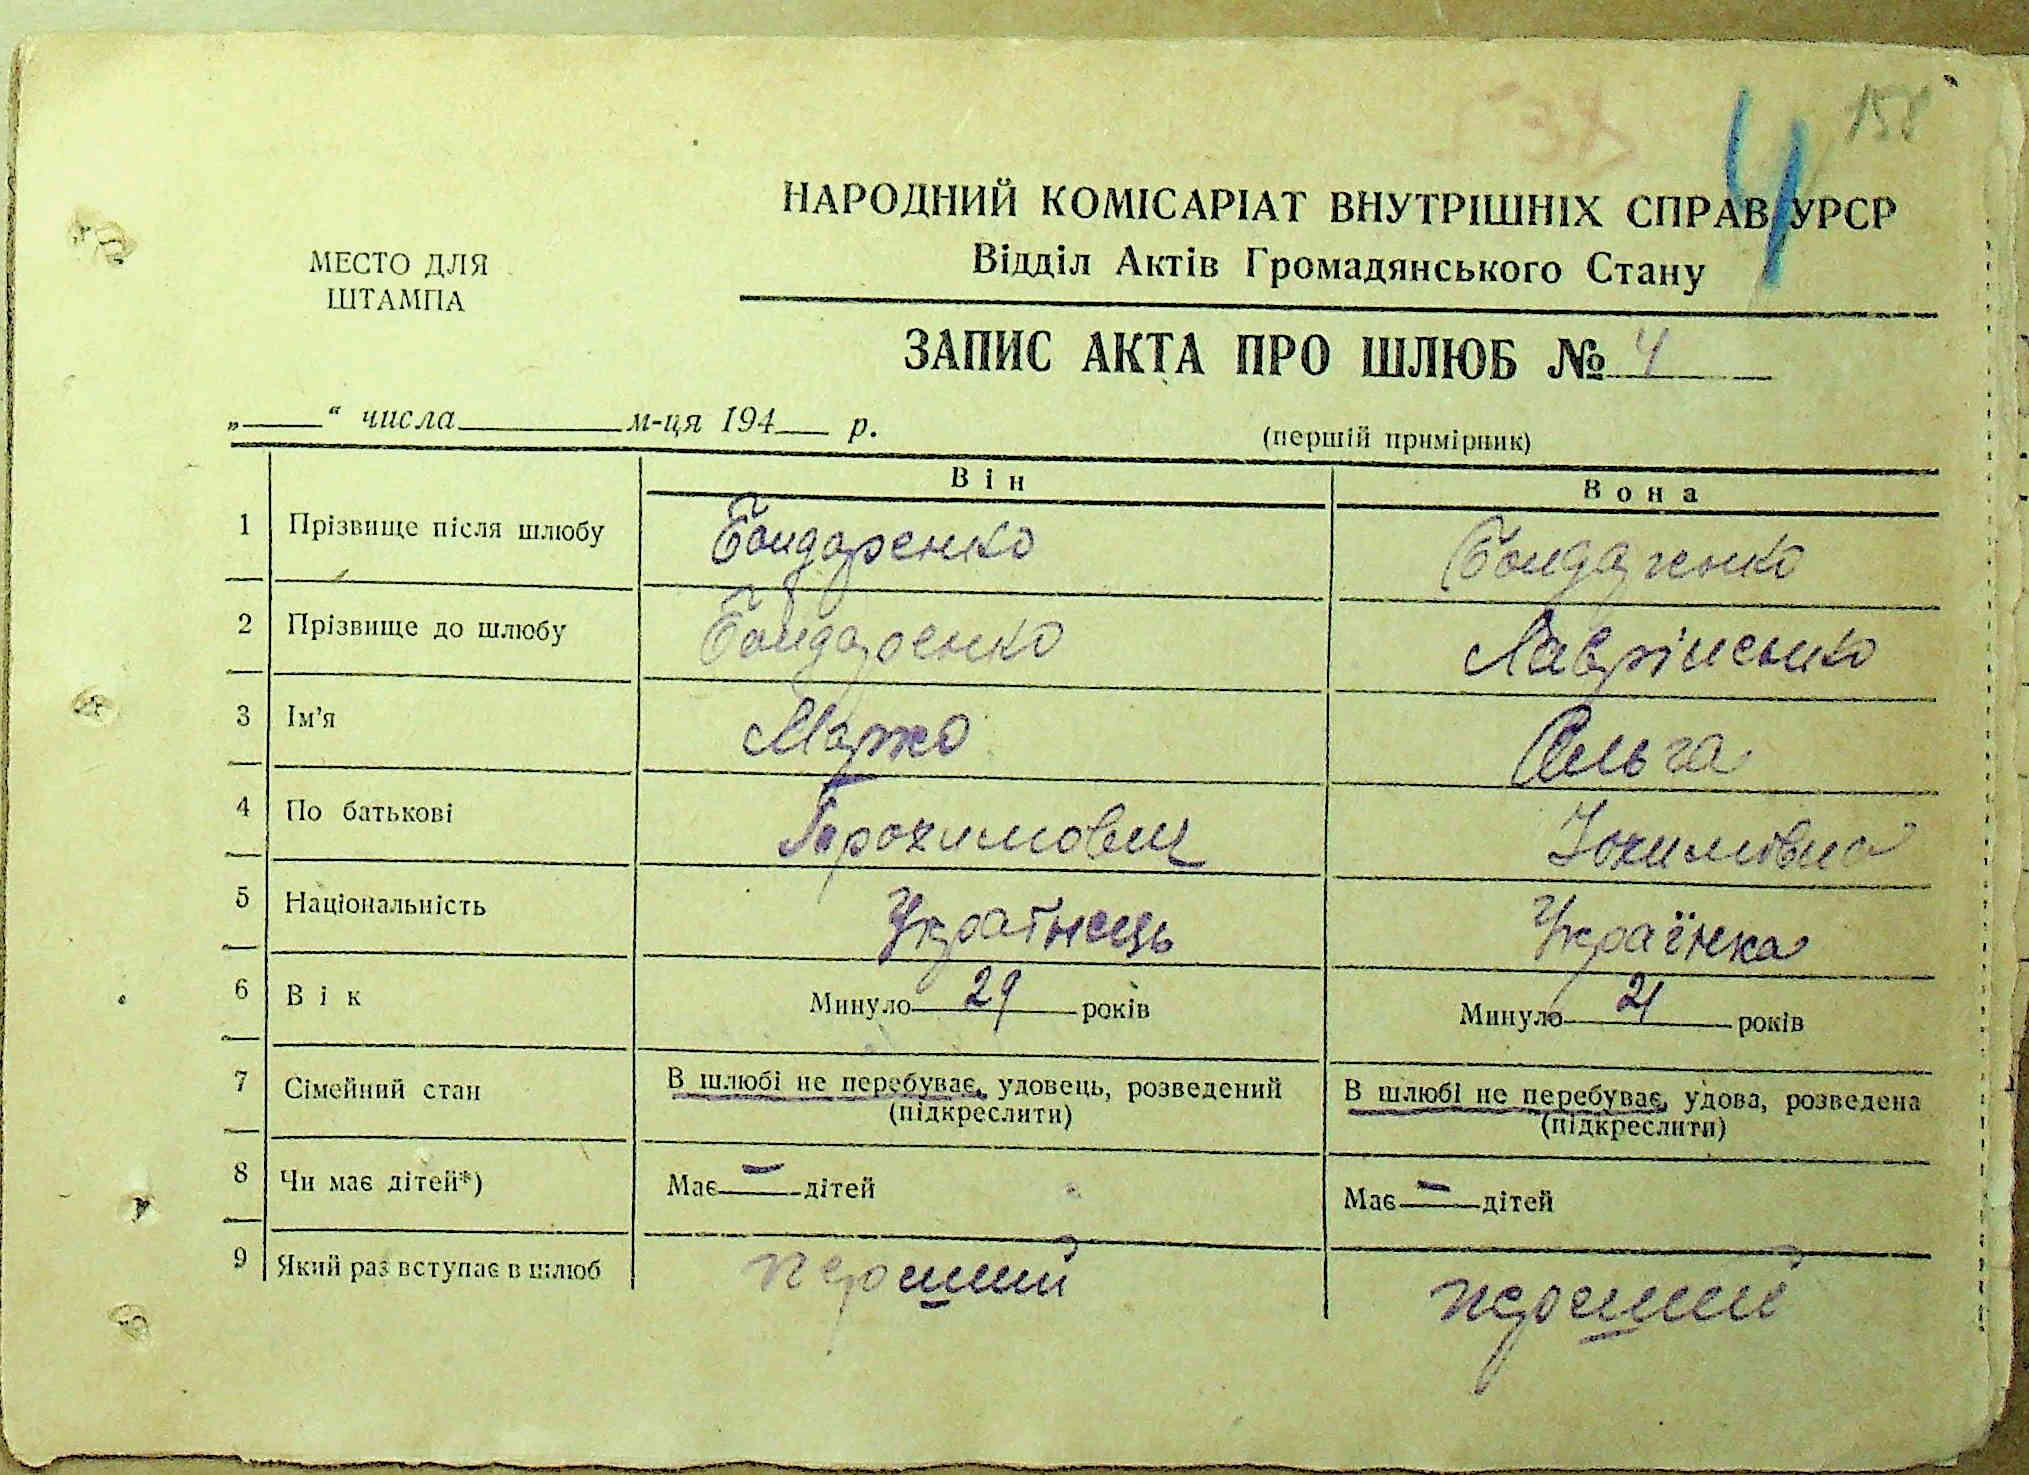 158
4
НАРОДНИЙ КОМІСАРІАТ ВНУТРІШНІХ СПРАВ УРСР
Відділ Актів Громадянського Стану
МЕСТО ДЛЯ
ШТАМПА
ЗАПИС АКТА ПРО ШЛЮБ № 4
„ “ числа м-ця 194 р.
(першій примірник)
Він Вона
1 Прізвище після шлюбу Бондаренко Бондаренко
2 Прізвище до шлюбу Бондаренко Лаврiненко
3 Ім’я Марко Ольга
4 По батькові Трохимович Юхимовна
5 Національність Українець Українка
6 Вік Минуло 29 років Минуло 21 років
7 Сімейний стан В шлюбі не перебуває, удовець, розведений В шлюбі не перебуває, удова, розведена
(підкреслити) (підкреслити)
8 Чи має дітей*) Має — дітей Має — дітей
9 Який раз вступає в шлюб перший перший